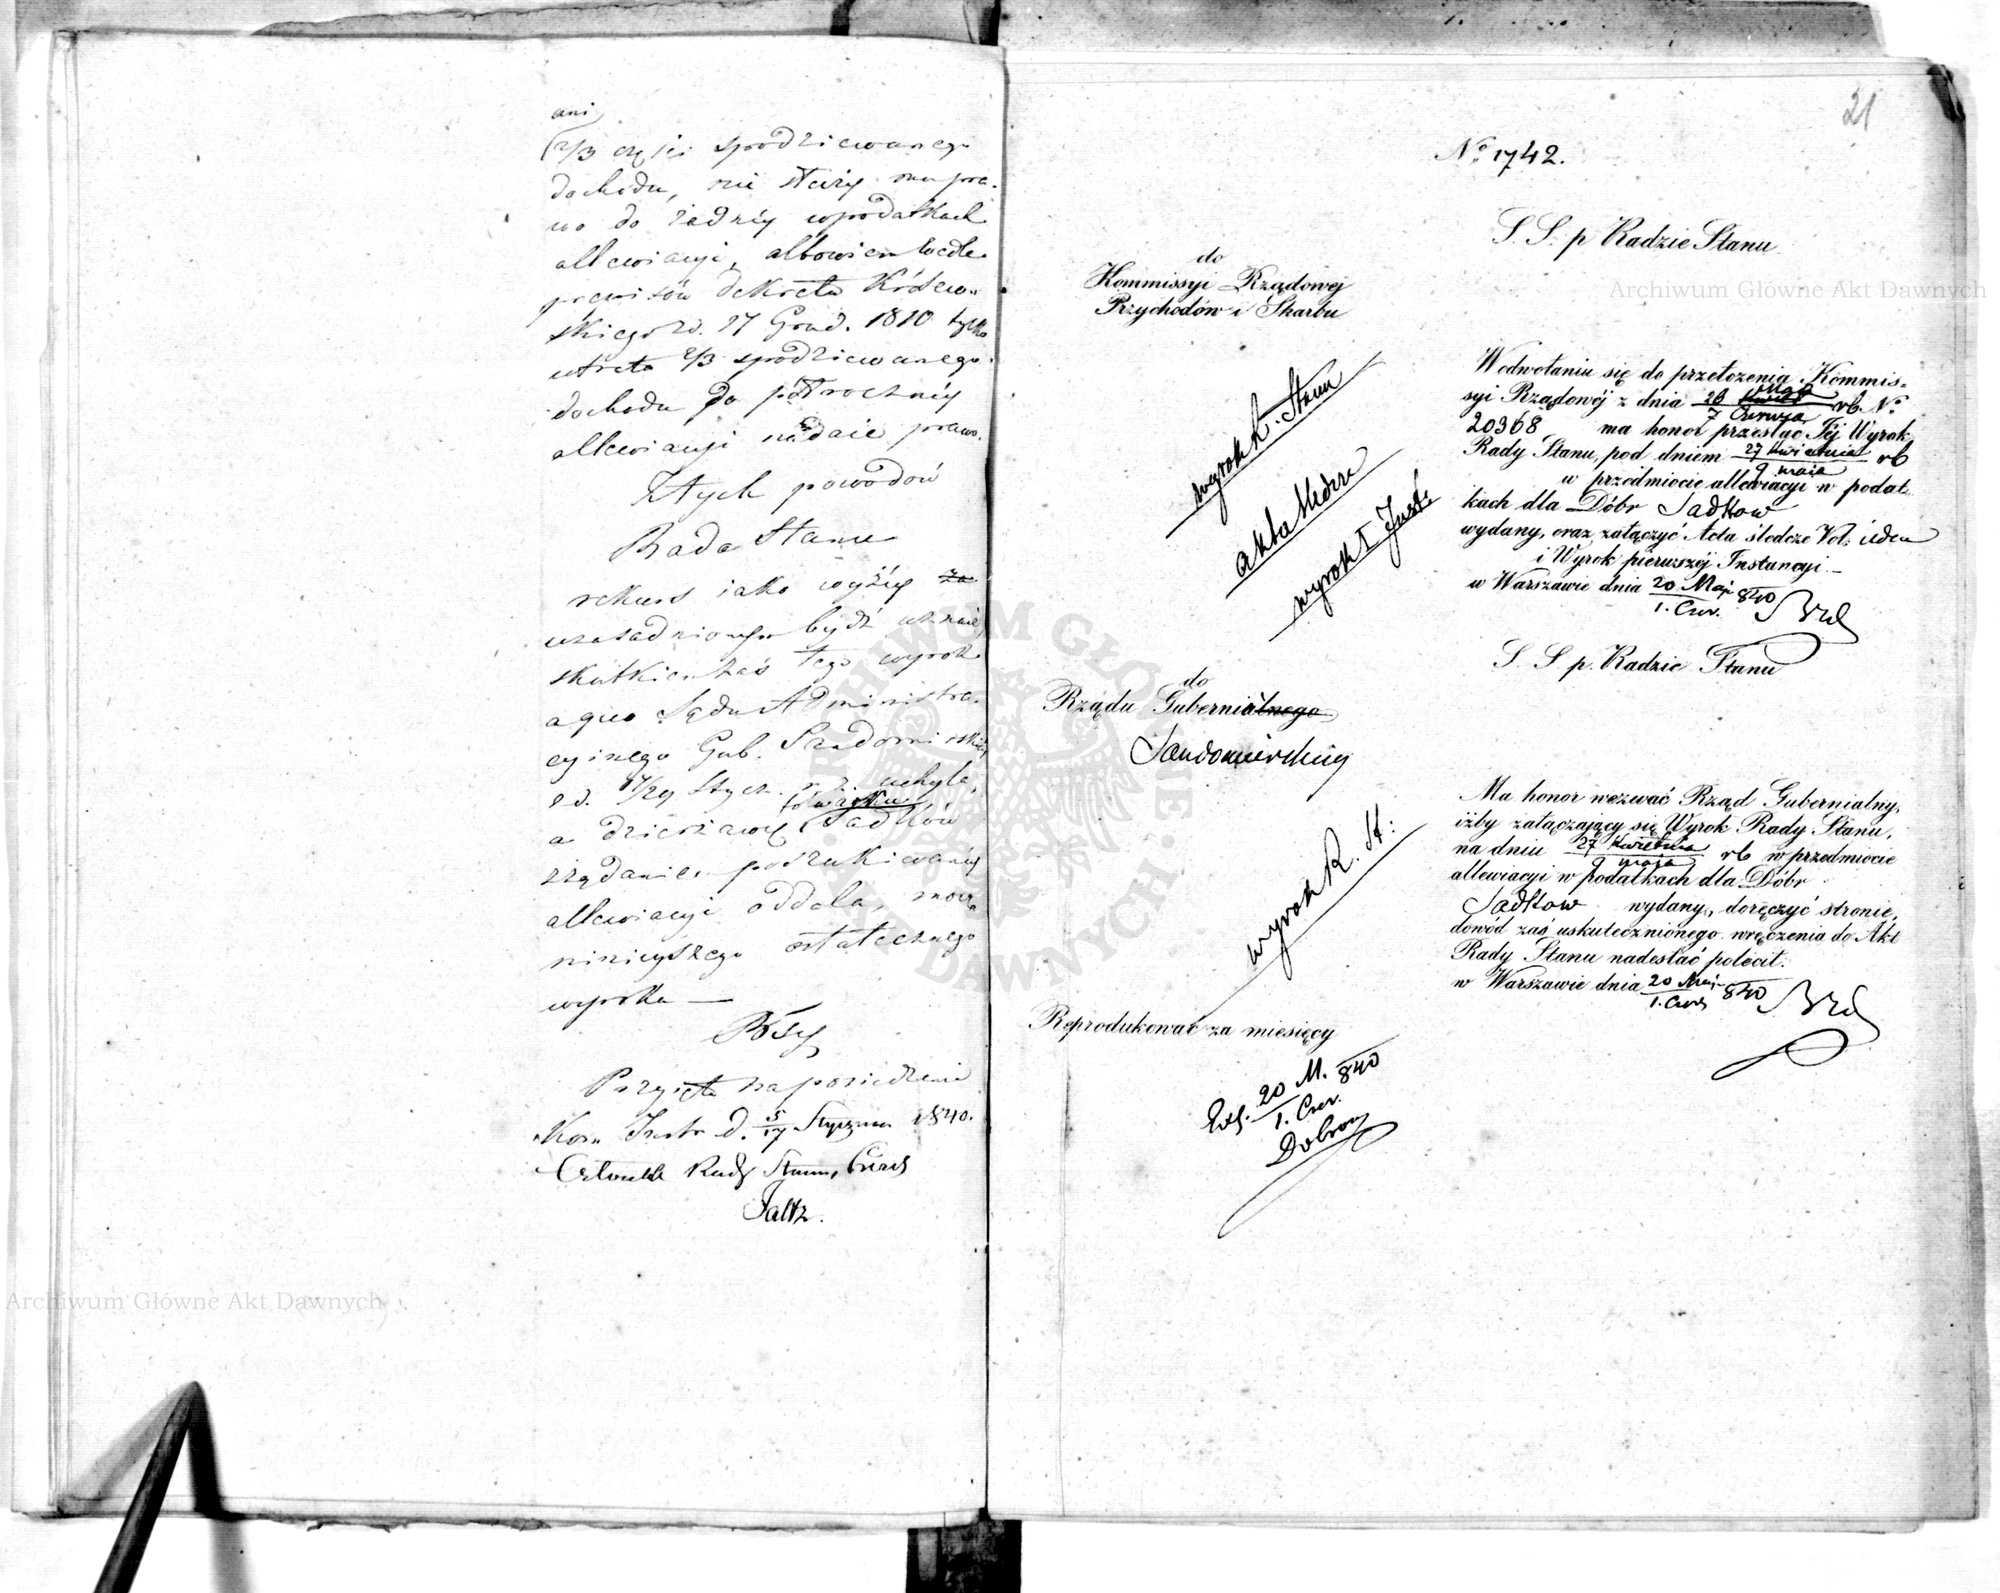 ani
2/3 części spodziewanego
dochodu, nie służy mu pra-
wo do żadnéy w podatkach
allewiacyi, albowiem wedle
przepisów dekretu Królew-
skiego z d. 17 Grud. 1810 tylko
utrata 2/3 spodziewanego
dochodu do półrocznéy
allewiacyi nadaie prawo.
Z tych powodów
Rada Stanu
rekurs iako wyżéy za
uzasadniony być uznaie
skutkiem zaś tego wyrok
a quo Sądu Administra-
cyinego Gub. Sandomirskiéy
z d. 17/29 Stycz. r. z. uchyla,
a dzierżawcę Sadków
żądanie poszukiwanéy
allewiacyi oddala, mocą
ninieyszego ostatecznego
wyroku —
Przyięto na posiedzeniu
Kom. Instr. d. 5/17 Stycznia 1840.
Członek Rady Stanu,
Faltz.
21
No 1742.
S. S. p Radzie Stanu
do
Kommissyi Rządowej
Przychodów i Skarbu
W odwołaniu się do przełożenia Kommis-
syi Rządowéj z dnia 26 Maja / 7 Czerwca rb. No
20368 ma honor przesłać Jéj Wyrok
Rady Stanu, pod dniem 27 Kwietnia / 9 maja rb
w przedmiocie allewiacyi w podat-
kach dla Dóbr Sadkow
wydany, oraz załączyć Acta śledcze Vol: ieden
i Wyrok pierwszéj Instancyi.—
w Warszawie dnia 20 Maja / 1. Czer. 840
wyrok R. Stanu
akta śledcze
wyrok I Inst.
S. S. p. Radzie Stanu
do
Rządu Gubernialnego
Sandomierskiey
Ma honor wezwać Rząd Gubernialny,
iżby załączający się Wyrok Rady Stanu,
na dniu 27 Kwietnia / 9 maja rb w przedmiocie
allewiacyi w podatkach dla Dóbr
Sadkow wydany, doręczyć stronie,
dowód zaś uskutecznionego wręczenia do Akt
Rady Stanu nadesłać polecił.
w Warszawie dnia 20 Maja / 1. Czer 840
wyrok R. St:
Reprodukować za miesięcy
Exp. 20 M. / 1. Czer. 840
Archiwum Główne Akt Dawnych
Archiwum Główne Akt Dawnych
ARCHIWUM GŁÓWNE AKT DAWNYCH